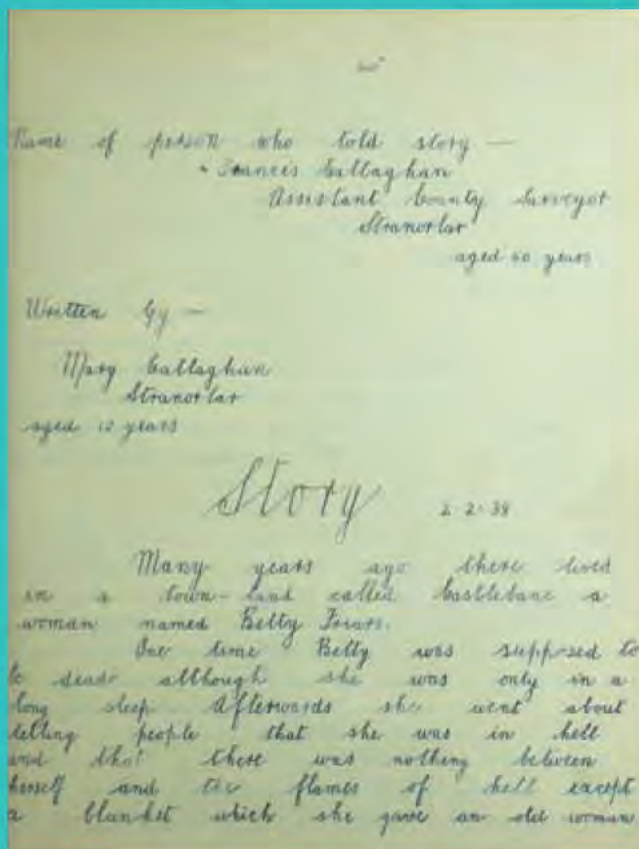 Name of person who told story —
Francis Callaghan
Assistant County Surveyor
Stranorlar
aged 40 years
Written by —
Mary Callaghan
Stranorlar
aged 12 years
Story 2.2.38
Many years ago there lived
in a town-land called Castlebane a
woman named Betty Friars.
One time Betty was supposed to
be dead although she was only in a
long sleep Afterwards she went about
telling people that she was in hell
and that there was nothing between
herself and the flames of hell except
a blanket which she gave an old woman